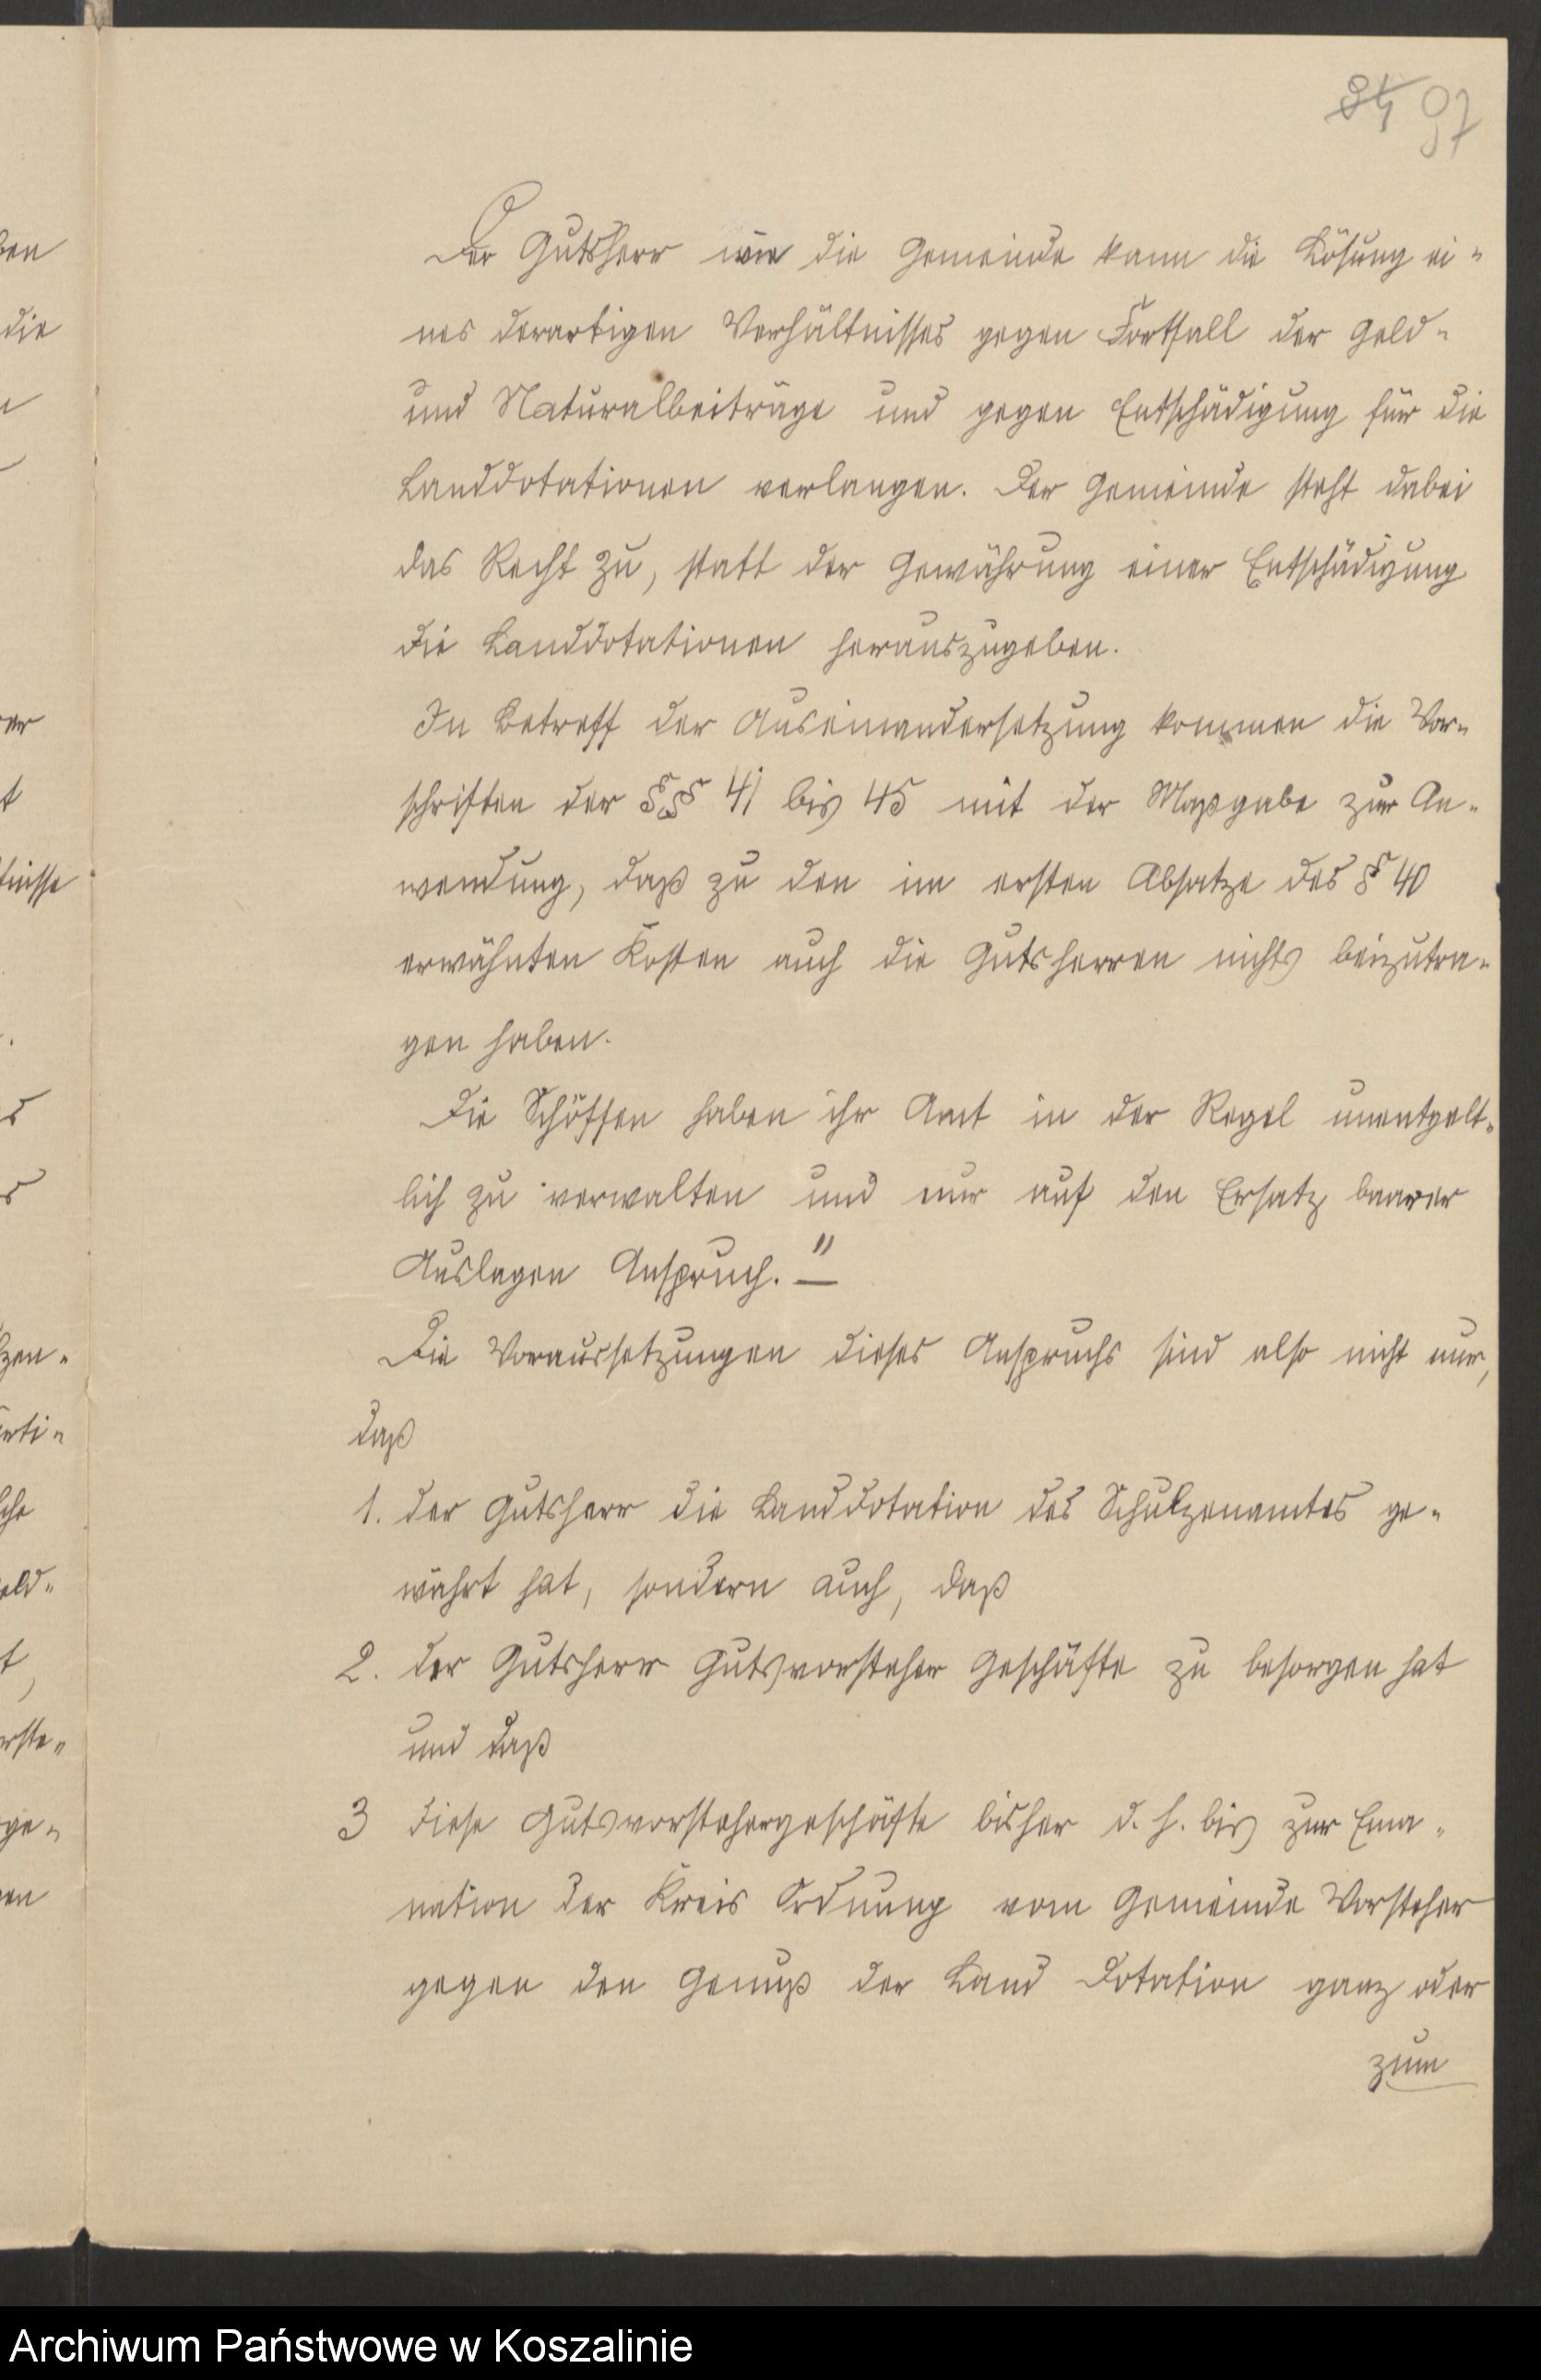 84 97
ben
die
Der Gutsherr wie die Gemeinde kann die Lösung ei-
nes derartigen Verhältnisses gegen Fortfall der Geld-
und Naturalbeiträge und gegen Entschädigung für die
Landdotationen verlangen. Der Gemeinde steht dabei
das Recht zu, statt der Gewährung einer Entschädigung
die Landdotationen herauszugeben.
In Betreff der Auseinandersetzung kommen die Vor-
schriften der §§ 41 bis 45 mit der Maßgabe zur An-
wendung, daß zu den im ersten Absatze des § 40
erwähnten Kosten auch die Gutsherren nichts beizutra-
gen haben.
Die Schöffen haben ihr Amt in der Regel unentgelt-
lich zu verwalten und nur auf den Ersatz baarer
Auslagen Anspruch."—
Die Voraussetzungen dieses Anspruchs sind also nicht nur,
daß
1. der Gutsherr die Landdotation des Schulzenamtes ge-
währt hat, sondern auch, daß
2. der Gutsherr Gutsvorsteher Geschäfte zu besorgen hat
und daß
3 diese Gutsvorstehergeschäfte bisher d. h. bis zur Ema-
nation der Kreis Ordnung vom Gemeinde Vorsteher
gegen den Genuß der Land Dotation ganz oder
zum
Archiwum Państwowe w Koszalinie